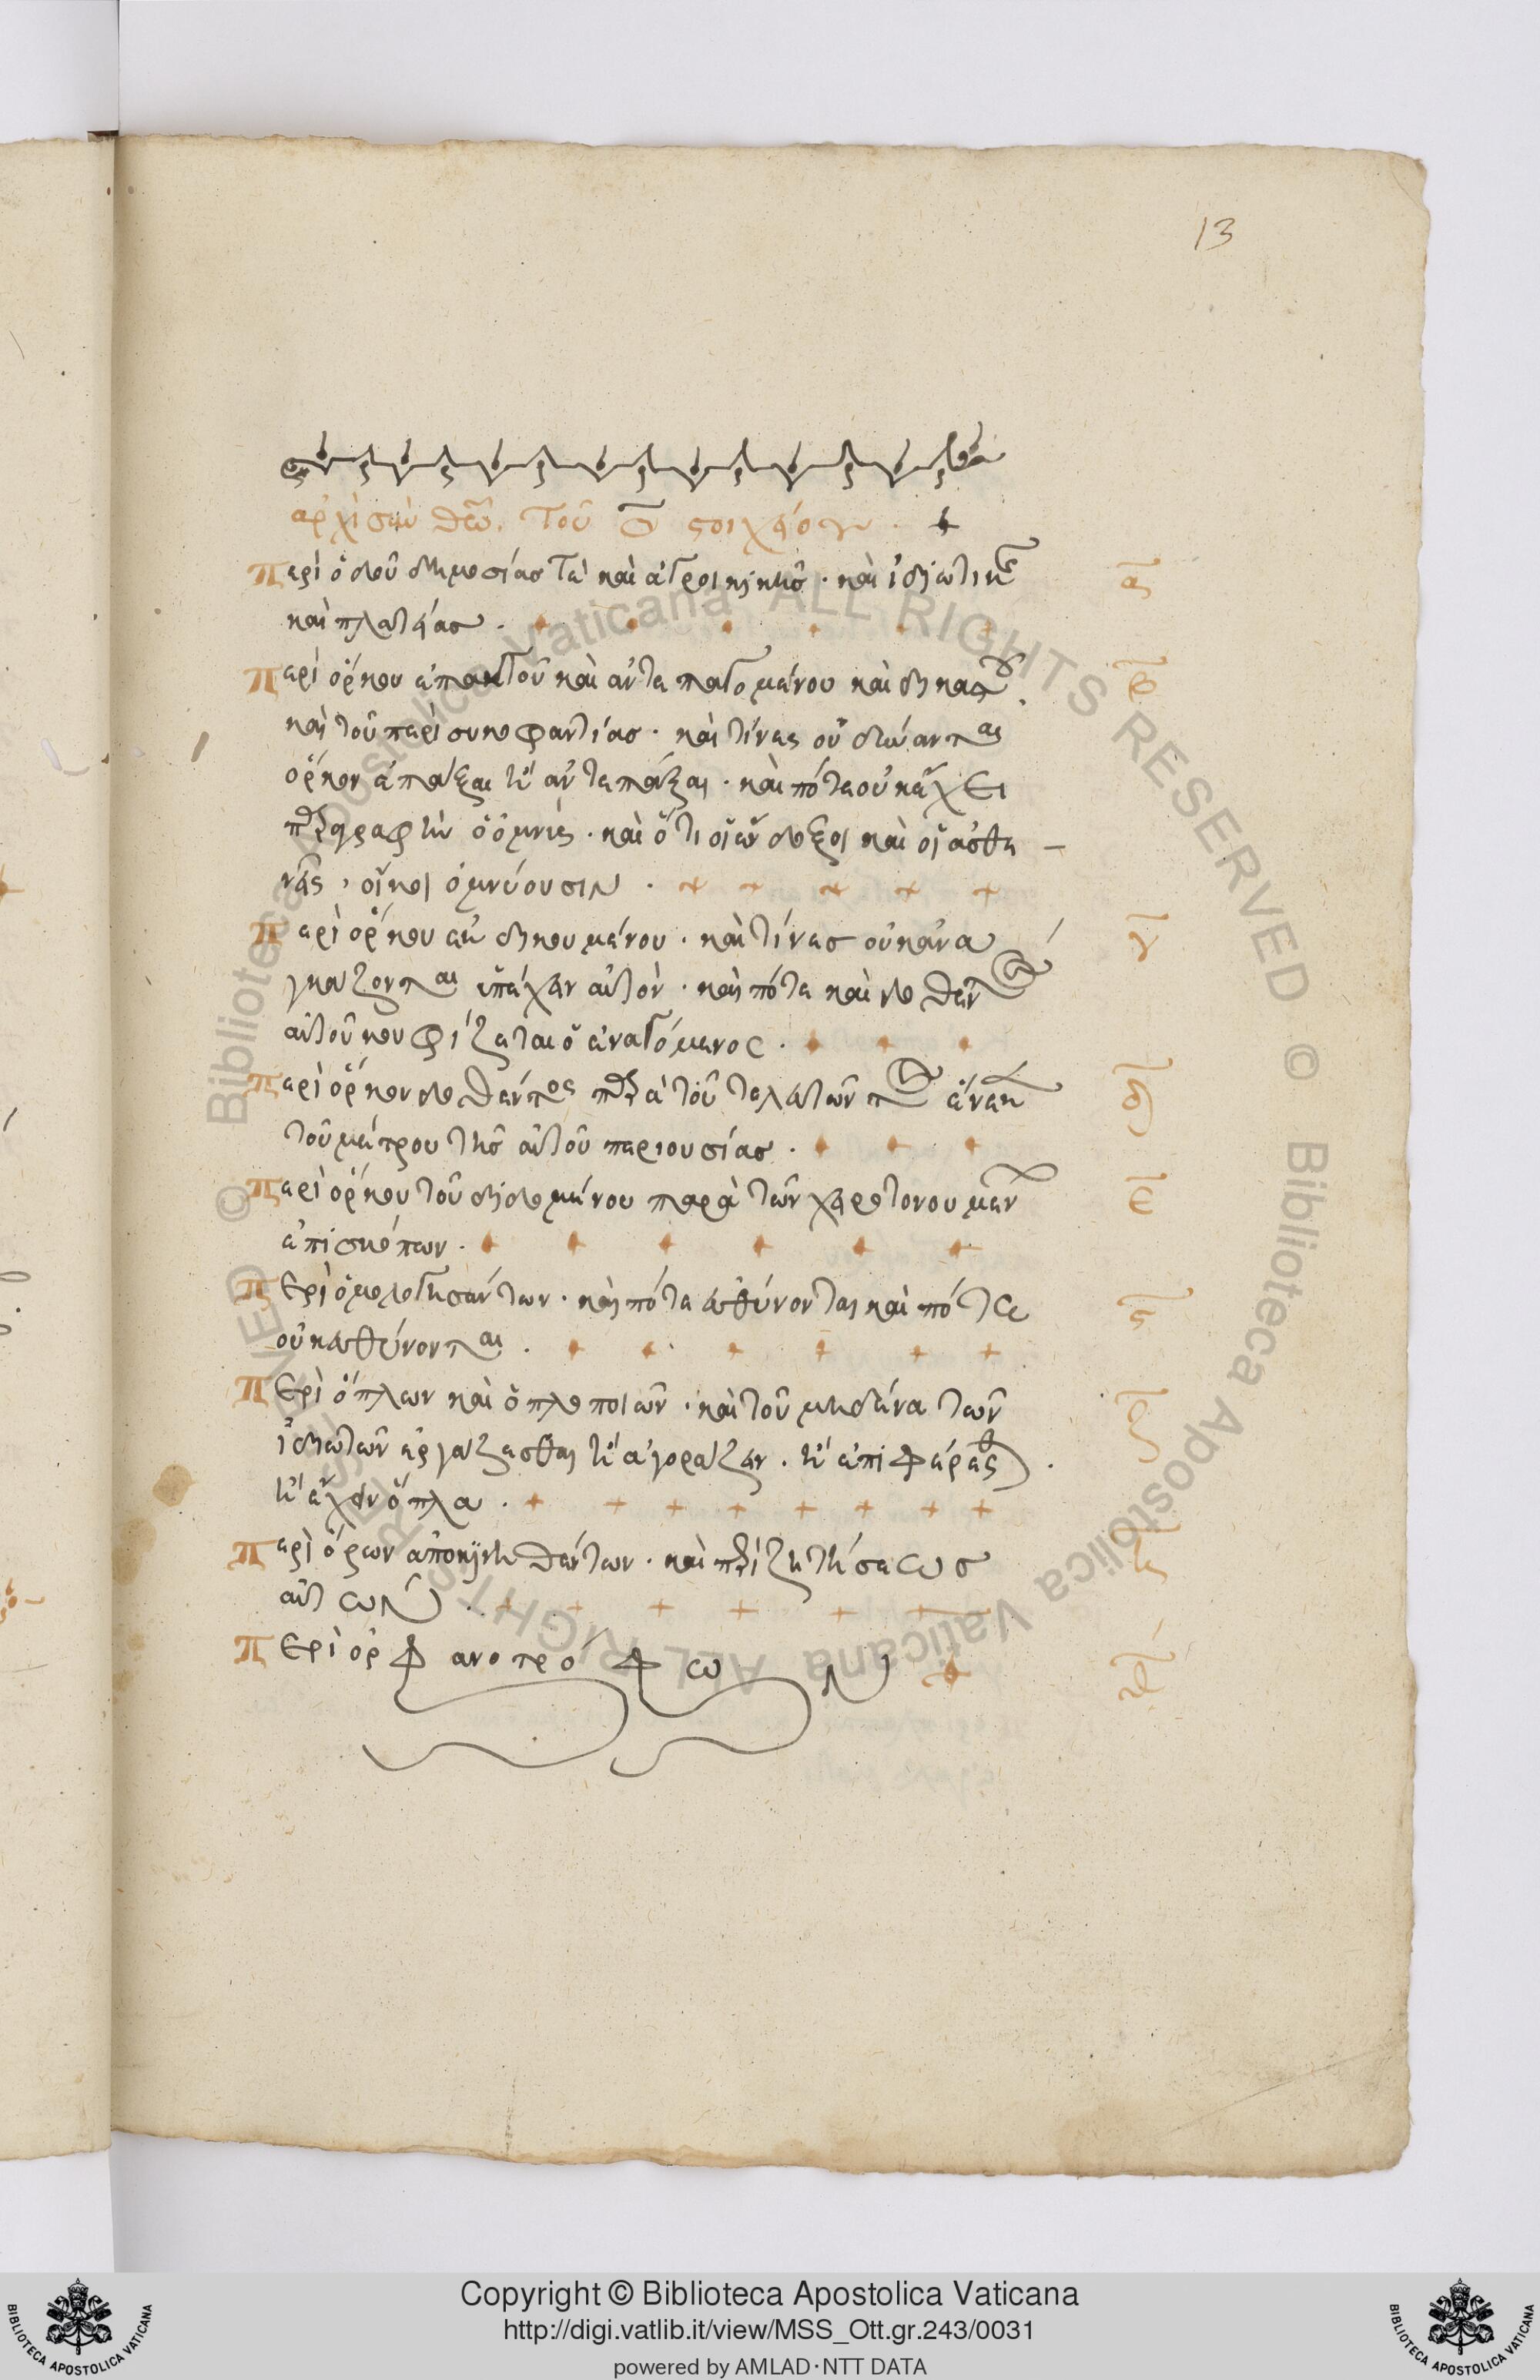 13
ἀρχὴ σὺν θεῷ τοῦ ο στοιχείου
Περὶ ὁδοῦ δημοσίας τὲ καὶ ἀγροικικῆς · καὶ ἰδιωτικῆς αον
καὶ πλατείας ·
Περὶ ὅρκου ἐπακτοῦ καὶ ἀντεπαγομένου καὶ δικαστοῦ · βον
καὶ τοῦ περὶ συκοφαντίας · καὶ τίνες οὐ δύνανται
ὅρκον ἐπάξαι ἢ ἀντεπάξαι · καὶ πότε οὐκ ἔχει
παραγραφὴν ὁ ὀμνύς · καὶ ὅτι οἱ ἔνδοξοι καὶ οἱ ἀσθε –
νεῖς, οἴκοι ὀμνύουσιν ·
Περὶ ὅρκου ἐκδίκου μένου · καὶ τίνες οὐκ ἀνα γον
γκάζονται ὑπέχειν αὐτόν · καὶ πότε καὶ δοθέντος
αὐτοῦ κουφίζεται ὁ ἐναγόμενος ·
Περὶ ὅρκου δοθέντος παρὰ τοῦ τελευτῶντος ἕνεκεν δον
τοῦ μέτρου τῆς αὐτοῦ περιουσίας ·
Περὶ ὅρκου τοῦ διδομένου παρὰ τῶν χειροτονουμένων εον
ἐπισκόπων ·
Περὶ ὁμολογησάντων · καὶ πότε εὐθύνονται καὶ πότε ϛον
οὐκ εὐθύνονται ·
Περὶ ὅπλων καὶ ὁπλοποιῶν · καὶ τοῦ μηδένα τῶν ζον
ἰδιωτῶν ἐργάζεσθαι ἢ ἀγοράζειν · ἢ ἐπιφέρεσθαι ·
ἢ ἔχειν ὅπλα ·
Περὶ ὅρων ἀποκινηθέντων · καὶ περὶ ζητήσεως ηον
αὐτῶν ·
Περὶ ὀρφανοτρόφων θον
Copyright © Biblioteca Apostolica Vaticana
http://digi.vatlib.it/view/MSS_Ott.gr.243/0031
powered by AMLAD·NTT DATA
BIBLIOTECA APOSTOLICA VATICANA
BIBLIOTECA APOSTOLICA VATICANA
© Biblioteca Apostolica Vaticana ALL RIGHTS RESERVED
© Biblioteca Apostolica Vaticana ALL RIGHTS RESERVED